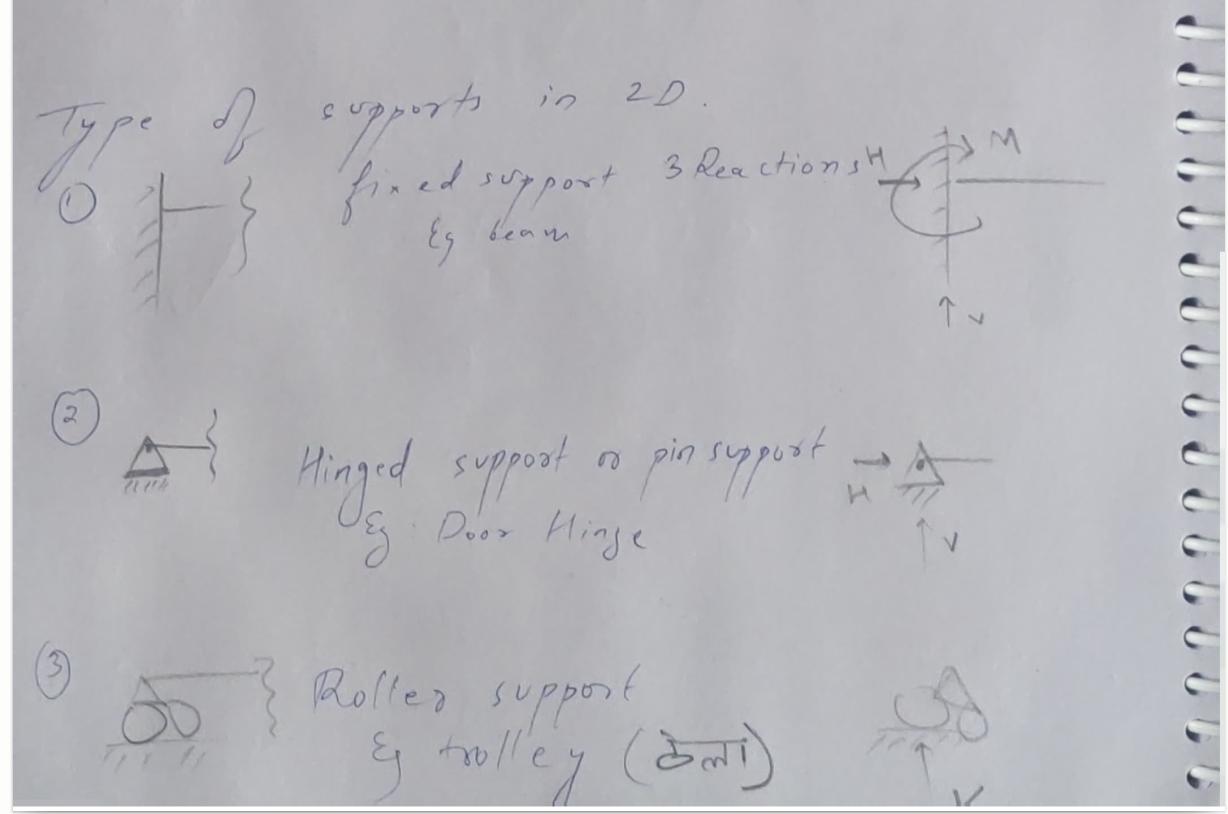 Type of supports in 2D.
① fixed support 3 Reactions H M
Eg beam
V
② Hinged support or pin support H
Eg: Door Hinge V
③ Roller support
Eg trolley (ठेला)
V